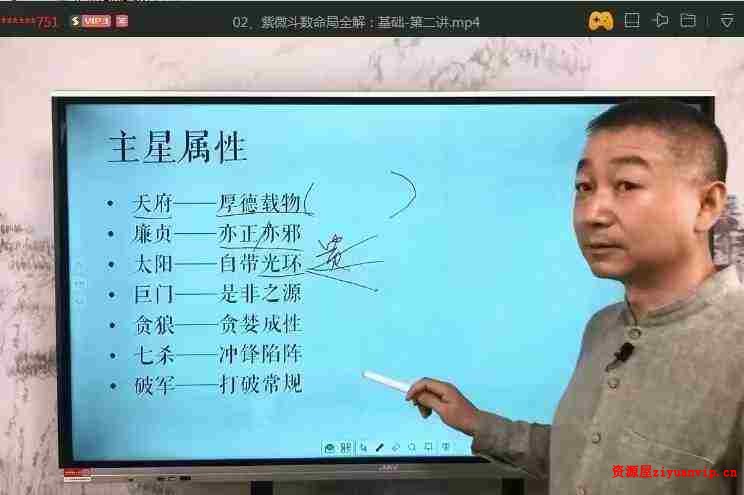 ******751 S VIP1
02、紫微斗数命局全解：基础-第二讲.mp4
主星属性
• 天府——厚德载物
• 廉贞——亦正亦邪
• 太阳——自带光环
• 巨门——是非之源
• 贪狼——贪婪成性
• 七杀——冲锋陷阵
• 破军——打破常规
资源屋ziyuanwig.cn